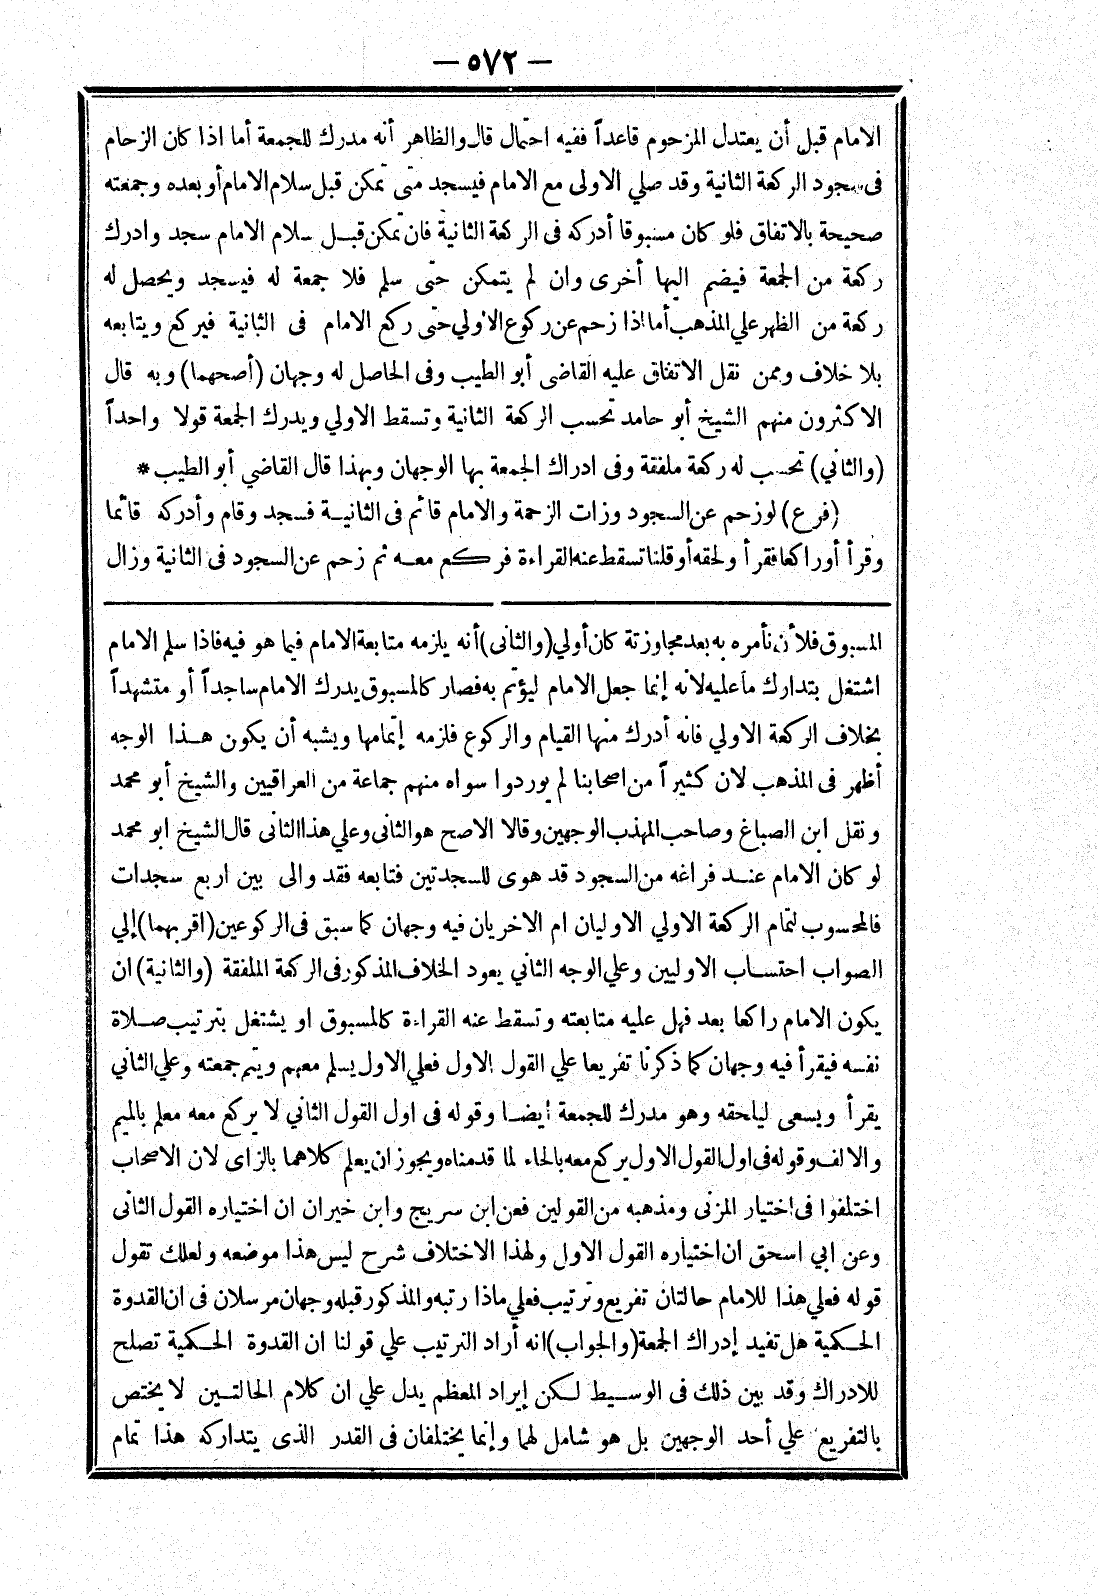 — ٥٧٢ —
الامام قبل أن يعتدل المزحوم قاعداً ففيه احتمال قال والظاهر أنه مدرك للجمعة أما اذا كان الزحام
فى سجود الركعة الثانية وقد صلي الاولى مع الامام فيسجد متى تمكن قبل سلام الامام أو بعده وجمعته
صحيحة بالاتفاق فلو كان مسبوقا أدركه فى الركعة الثانية فان تمكن قبل سلام الامام سجد وادرك
ركعة من الجمعة فيضم اليها أخرى وان لم يتمكن حتى سلم فلا جمعة له فيسجد ويحصل له
ركعة من الظهر علي المذهب أما اذا زحم عن ركوع الاولي حتى ركع الامام فى الثانية فيركع ويتابعه
بلا خلاف وممن نقل الاتفاق عليه القاضى أبو الطيب وفى الحاصل له وجهان (أصحهما) وبه قال
الاكثرون منهم الشيخ أبو حامد تحسب الركعة الثانية وتسقط الاولي ويدرك الجمعة قولا واحداً
(والثاني) تحسب له ركعة ملفقة وفى ادراك الجمعة بها الوجهان وبهذا قال القاضي أبو الطيب *
(فرع) لو زحم عن السجود وزات الزحمة والامام قائم فى الثانية فسجد وقام وأدركه قائما
وقرأ أو راكعا فقرأ ولحقه أو قلنا تسقط عنه القراءة فركع معه ثم زحم عن السجود فى الثانية وزال
المسبوق فلأن نأمره به بعد مجاوزته كان أولي (والثانى) أنه يلزمه متابعة الامام فيما هو فيه فاذا سلم الامام
اشتغل بتدارك ما عليه لانه إنما جعل الامام ليؤتم به فصار كالمسبوق يدرك الامام ساجداً أو متشهداً
بخلاف الركعة الاولي فانه أدرك منها القيام والركوع فلزمه إتمامها ويشبه أن يكون هذا الوجه
أظهر فى المذهب لان كثيراً من اصحابنا لم يوردوا سواه منهم جماعة من العراقيين والشيخ أبو محمد
ونقل ابن الصباغ وصاحب المهذب الوجهين وقالا الاصح هو الثانى وعلي هذا الثانى قال الشيخ ابو محمد
لو كان الامام عند فراغه من السجود قد هوى للسجدتين فتابعه فقد والى بين اربع سجدات
فالمحسوب لتمام الركعة الاولي الاوليان ام الاخريان فيه وجهان كما سبق فى الركوعين (اقربهما) إلي
الصواب احتساب الاوليين وعلي الوجه الثاني يعود الخلاف المذكور فى الركعة الملفقة (والثانية) ان
يكون الامام راكعا بعد فهل عليه متابعته وتسقط عنه القراءة كالمسبوق او يشتغل بترتيب صلاة
نفسه فيقرأ فيه وجهان كما ذكرنا تفريعا علي القول الاول فعلي الاول يسلم معهم ويتم جمعته وعلي الثاني
يقرأ ويسعى ليلحقه وهو مدرك للجمعة أيضا وقوله فى اول القول الثاني لا يركع معه معلم بالميم
والالف وقوله فى اول القول الاول يركع معه بالحاء لما قدمناه ويجوز ان يعلم كلاهما بالزاى لان الاصحاب
اختلفوا فى اختيار المزنى ومذهبه من القولين فعن ابن سريج وابن خيران ان اختياره القول الثانى
وعن ابي اسحق ان اختياره القول الاول ولهذا الاختلاف شرح ليس هذا موضعه ولعلك تقول
قوله فعلي هذا للامام حالتان تفريع وترتيب فعلي ماذا رتبه والمذكور قبله وجهان مرسلان فى ان القدوة
الحكمية هل تفيد إدراك الجمعة (والجواب) انه أراد الترتيب علي قولنا ان القدوة الحكمية تصلح
للادراك وقد بين ذلك فى الوسيط لكن إيراد المعظم يدل علي ان كلام الحالتين لا يختص
بالتفريع علي أحد الوجهين بل هو شامل لهما وإنما يختلفان فى القدر الذى يتداركه هذا تمام